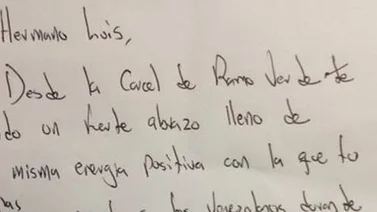 Hermano Luis,
Desde la Carcel de Ramo Verde te
do un fuerte abrazo lleno de
misma energia positiva con la que tu